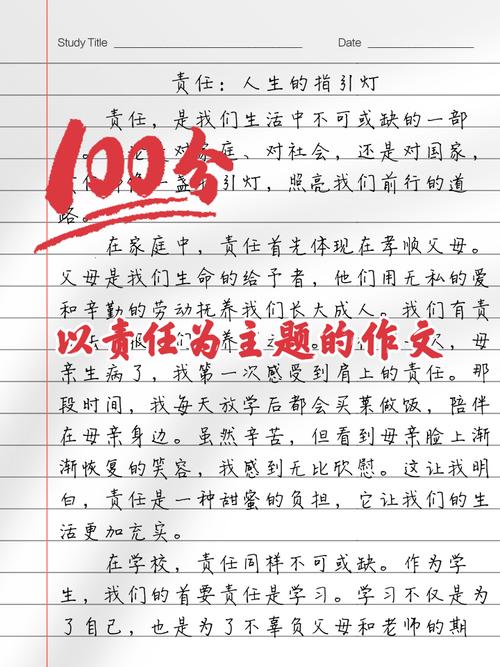 Study Title
Date
责任：人生的指引灯
责任，是我们生活中不可或缺的一部
100分
对家庭、对社会，还是对国家，
一盏指引灯，照亮我们前行的道
路。
在家庭中，责任首先体现在孝顺父母。
父母是我们生命的给予者，他们用无私的爱
和辛勤的劳动抚养我们长大成人。我们有责
以责任为主题的作文
母
亲生病了，我第一次感受到肩上的责任。那
段时间，我每天放学后都会买菜做饭，陪伴
在母亲身边。虽然辛苦，但看到母亲脸上渐
渐恢复的笑容，我感到无比欣慰。这让我明
白，责任是一种甜蜜的负担，它让我们的生
活更加充实。
在学校，责任同样不可或缺。作为学
生，我们的首要责任是学习。学习不仅是为
了自己，也是为了不辜负父母和老师的期